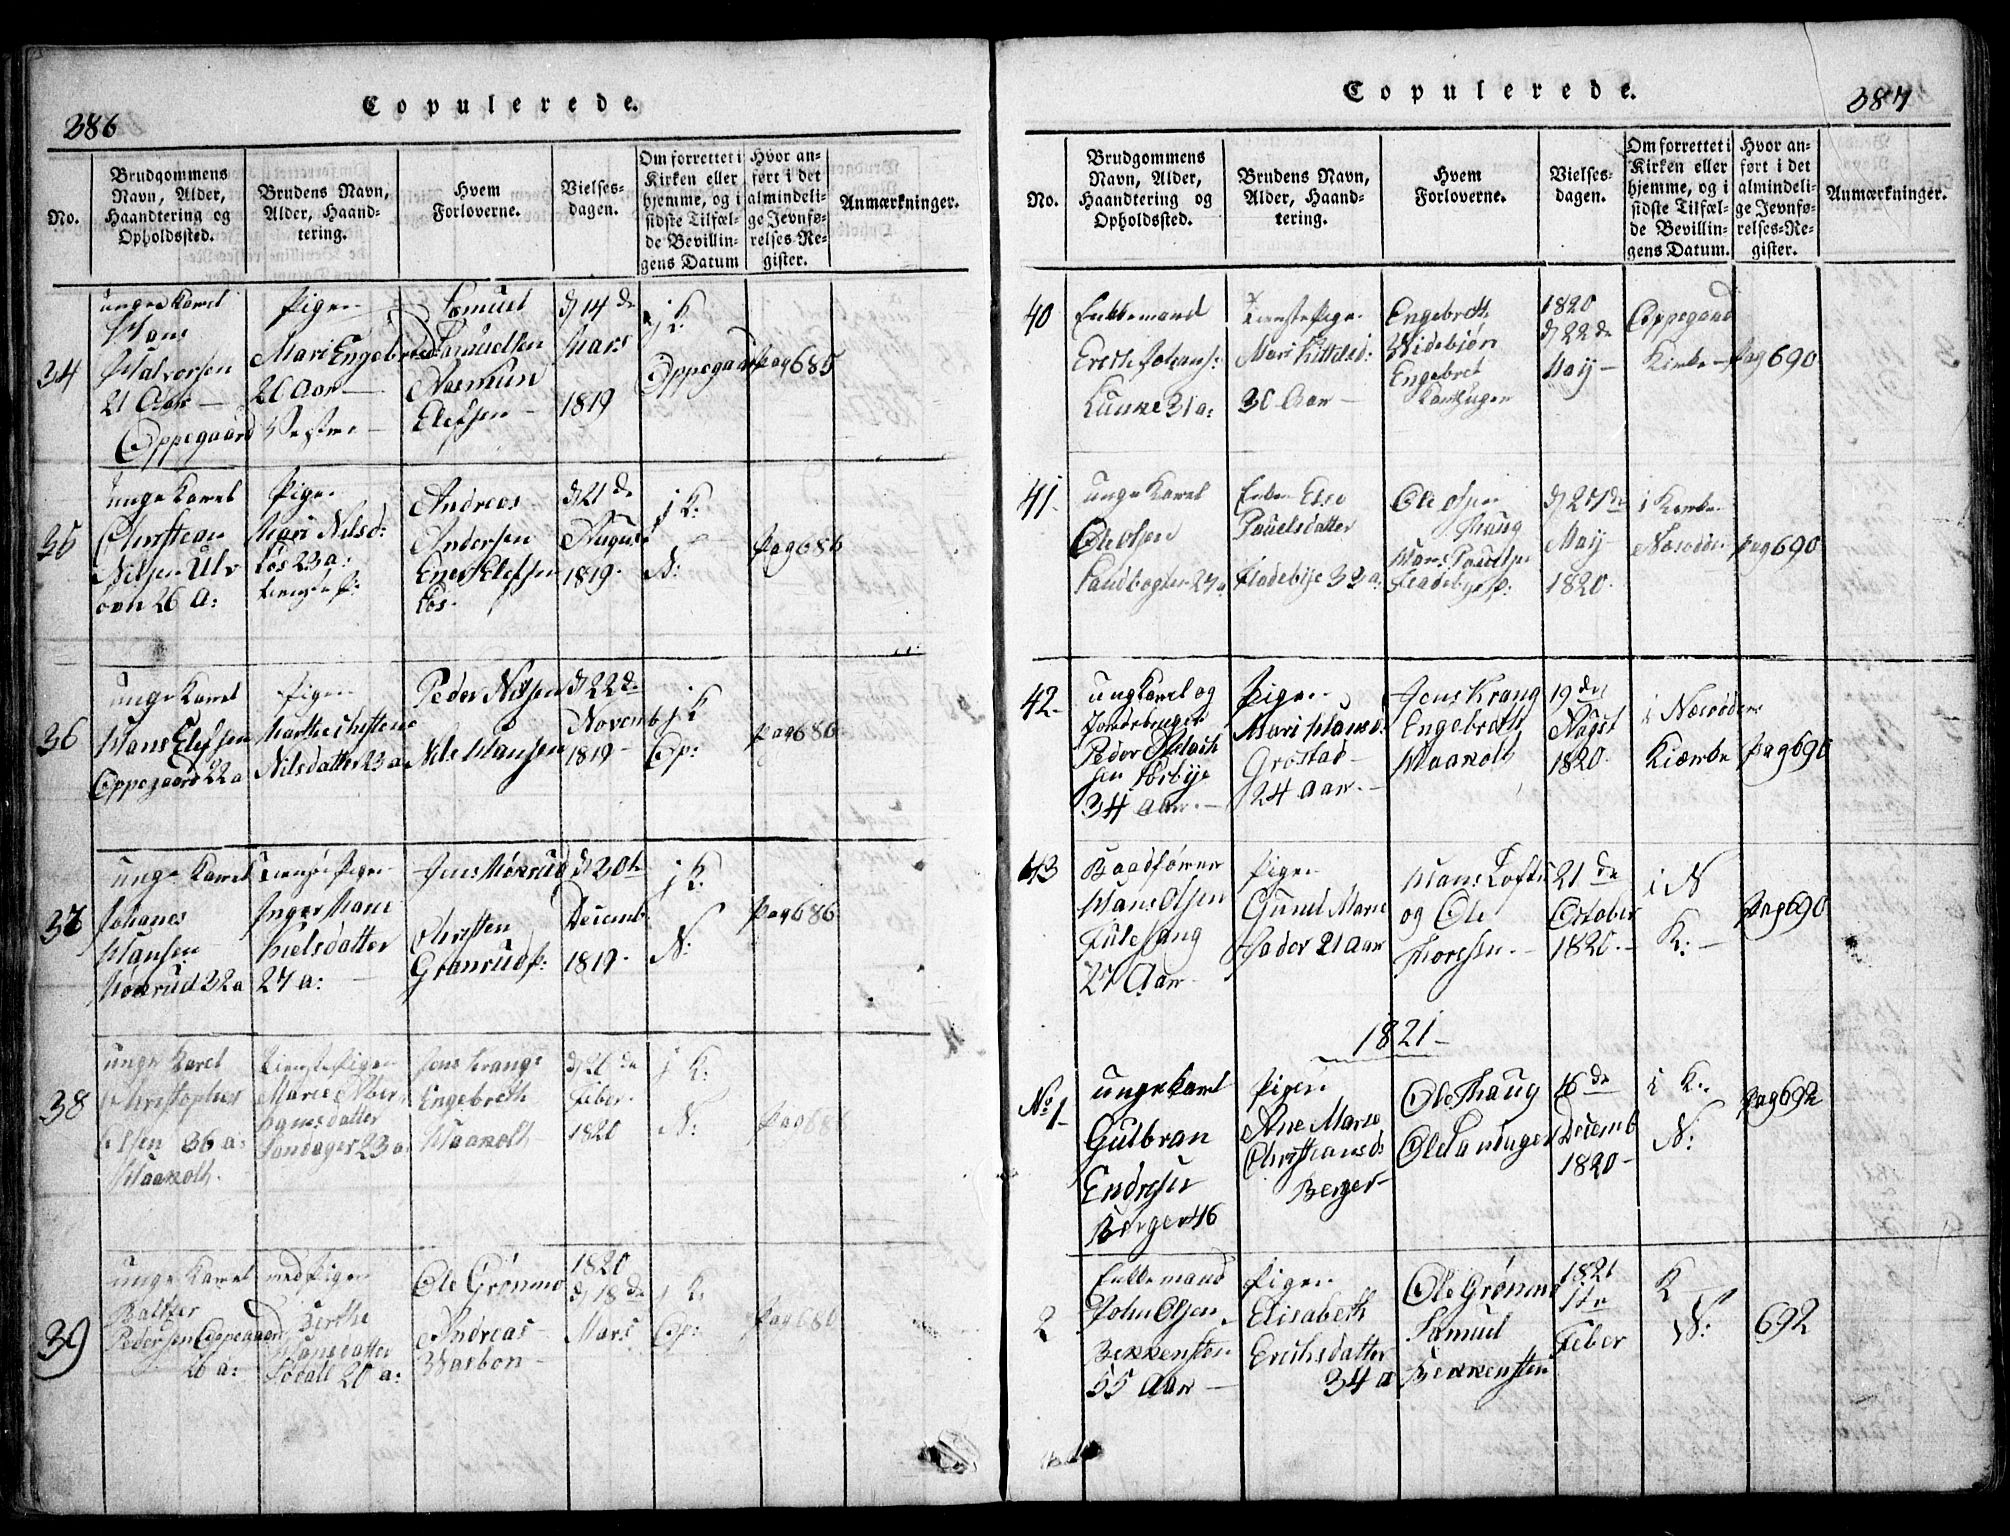 386
Copulerede.
No.
Brudgommens
Navn, Alder,
Haandtering og
Opholdssted.
Brudens Navn,
Alder, Haand-
tering.
Hvem
Forloverne.
Vielses-
dagen.
Om forrettet i
Kirken eller
hjemme, og i
sidste Tilfæl-
de Bevillin-
gens Datum
Hvor an-
ført i det
almindeli-
ge Jevnfø-
relses-Re-
gister.
Anmærkninger.
34
unge Karel
Hans
Halvorsen
21 Aar
Oppegaard
Pigen
Mari Engebretsd
20 Aar
Samuel
Samuelsen
Rasmun
Elefsen
d 14 de
Mars
1819
i K:
Oppegaard
Pag 685
35
unge Karel
Christian
Nilsen Ulv
oen 26 a:
Pigen
Mari Nilsd:
Løs 23 a:
Andreas
Andersen
Enersen
Løs
d 21 de
August
1819
i K:
N:
Pag 686
36
unge Karel
Hans Elefsen
Oppegaard 22 a
Pigen
Marthe Christene
Nilsdatter 23 a
Peder Nilsen
Nils Hansen
d 22 de
Novemb
1819
i K
Op:
Pag 686
37
unge Karel
Johanes
Hansen
Hönrud 32 a
Tieneste Pigen
Inger Marie
Nielsdatter
27 a:
Jens Mönrud
Christen
Granrud p:
d 20 de
Decemb
1819
i K:
N:
Pag 686
38
unge Karel
Christopher
Olsen 36 a:
Haakoth
Tieneste Pigen
Marie Ober
hansdatter
Sandager 23 a
Jens Krange
Engebreth
Haakoth
d 26 de
Feber
1820
i K:
N:
Pag 686
39
unge Karel
Baltzer
Pedersen Oppegaard
26 a:
med Pigen
Berthe
Hansdatter
20 a:
Ole Grönmo
Andreas
Warbon
1820
d 18 de
Mars
i K:
Op:
Pag 686
387
Copulerede.
No.
Brudgommens
Navn, Alder,
Haandtering og
Opholdssted.
Brudens Navn,
Alder, Haand-
tering.
Hvem
Forloverne.
Vielses-
dagen.
Om forrettet i
Kirken eller
hjemme, og i
sidste Tilfæl-
de Bevillin-
gens Datum.
Hvor an-
ført i det
almindeli-
ge Jevnfø-
relses-Re-
gister.
Anmærkninger.
40
Enkemand
Erich Johans:
Kunne 31 a:
Tieneste Pigen
Mari Kittelsd:
30 Aar
Engebreth
Widebjörn
Engebret
1820
d 22 de
Maij
Oppegaard
Kirke
Pag 690
41
unge Karel
Ole Olsen
Sandbogten 27 a
Enken Else
Pauelsdatter
Fladebije 33 a:
Ole Olsen
Haug
Hans Pauelsen
Fladebije p:
d 27 de
Maij
1820
i Kierke
Næsodden
Pag 690
42
ungKarel og
Peder
34 aar
Pigen
Mari Hansd:
Grøstad
24 aar
Jens Krang
Engebreth
Haakoth
19 de
Augst
1820
i Næsøden
Kiærke
Pag 690
43
Baadfører
Hans Olsen
Fulesang
27 Aar
Pigen
Gunel Marie
21 Aar
Hans Tofte
og Ole
Thoresen
21 de
October
1820
i N
K:
Pag 690
1821
No 1
unge Karl
Gulbran
Endresen
Berger 46
Pigen
Ane Marie
Christiansd:
Berger
Ole Haug
Ole Sandager
16 de
Decemb
1820
i K:
N:
Pag 692
2
Enkemand
John Olsen
Bekkensten
55 Aar
Pigen
Elisabeth
Erichsdatter
34 a
Ole Grönmo
Samuel
Bekkensten
1821
Feber
K
N:
692